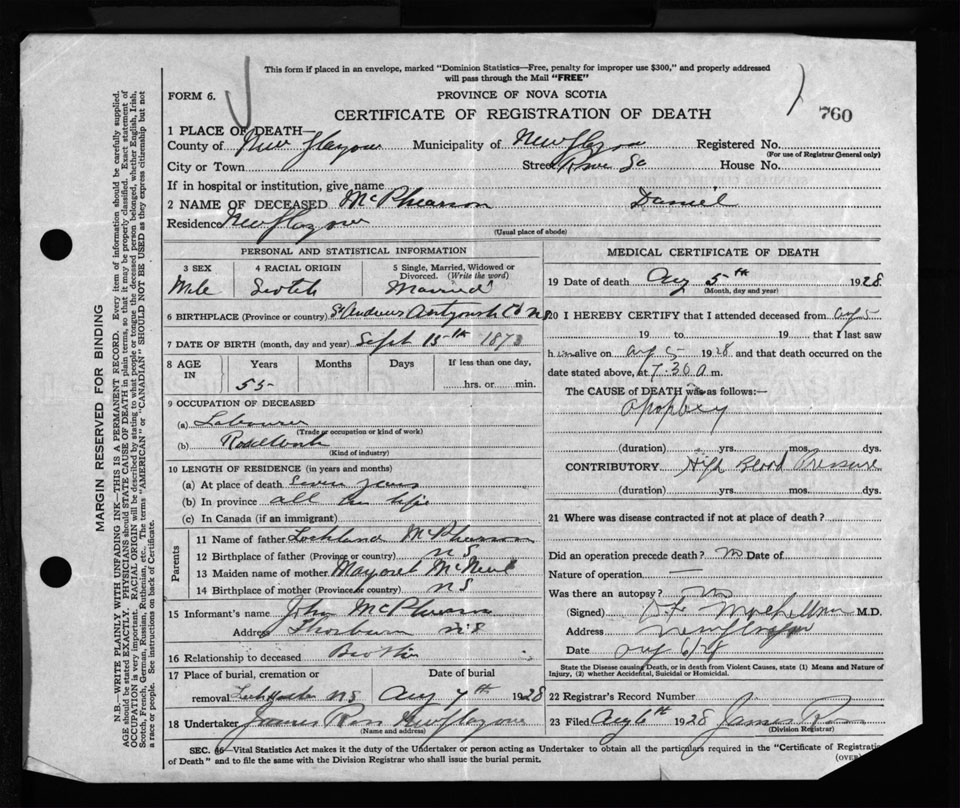 This form if placed in an envelope, marked "Dominion Statistics—Free, penalty for improper use $300," and properly addressed
will pass through the Mail "FREE"
FORM 6.
PROVINCE OF NOVA SCOTIA
CERTIFICATE OF REGISTRATION OF DEATH
760
1 PLACE OF DEATH—
County of New Glasgow Municipality of New Glasgow Registered No.
(For use of Registrar General only)
City or Town Street House No.
If in hospital or institution, give name
2 NAME OF DECEASED McPhearson Daniel
Residence New Glasgow
(Usual place of abode)
PERSONAL AND STATISTICAL INFORMATION
3 SEX 4 RACIAL ORIGIN 5 Single, Married, Widowed or Divorced. (Write the word)
Male Scotch Married
6 BIRTHPLACE (Province or country) St Andrews Antigonish Co N.S.
7 DATE OF BIRTH (month, day and year) Sept 15th 1873
8 AGE IN Years Months Days If less than one day,
55 hrs. or min.
9 OCCUPATION OF DECEASED
(a) Labourer
(Trade or occupation or kind of work)
(b)
(Kind of industry)
10 LENGTH OF RESIDENCE (in years and months)
(a) At place of death Seven years
(b) In province all his life
(c) In Canada (if an immigrant)
Parents
11 Name of father McPhearson
12 Birthplace of father (Province or country) N S
13 Maiden name of mother Margaret McNeil
14 Birthplace of mother (Province or country) N S
15 Informant's name John McPhearson
Address Thorburn N S
16 Relationship to deceased Brother
17 Place of burial, cremation or Date of burial
removal N S Aug 7th 1928
18 Undertaker James Ross New Glasgow
(Name and address)
MEDICAL CERTIFICATE OF DEATH
19 Date of death Aug 5th 1928
(Month, day and year)
20 I HEREBY CERTIFY that I attended deceased from Aug 5
19 to 19 that I last saw
him alive on Aug 5 1928 and that death occurred on the
date stated above, at 7.30 a m.
The CAUSE of DEATH was as follows:—
(duration) yrs. mos. dys.
CONTRIBUTORY High Blood Pressure
(duration) yrs. mos. dys.
21 Where was disease contracted if not at place of death?
Did an operation precede death? no Date of
Nature of operation —
Was there an autopsy? no
(Signed) M.D.
Address New Glasgow
Date Aug 6/28
State the Disease causing Death, or in death from Violent Causes, state (1) Means and Nature of
Injury, and (2) whether Accidental, Suicidal or Homicidal.
22 Registrar's Record Number
23 Filed Aug 6th 1928 James Ross
(Division Registrar)
SEC. 46—Vital Statistics Act makes it the duty of the Undertaker or person acting as Undertaker to obtain all the particulars required in the "Certificate of Registration
of Death" and to file the same with the Division Registrar who shall issue the burial permit.
(OVER)
MARGIN RESERVED FOR BINDING
N.B.—WRITE PLAINLY WITH UNFADING INK—THIS IS A PERMANENT RECORD. Every item of information should be carefully supplied.
AGE should be stated EXACTLY. PHYSICIANS should STATE CAUSE OF DEATH in plain terms, so that it may be properly classified. Exact statement of
OCCUPATION is very important. RACIAL ORIGIN will be described by stating to what people or tongue the deceased person belonged, whether English, Irish,
Scotch, French, German, Russian, Ruthenian, etc. The terms "AMERICAN" or "CANADIAN" SHOULD NOT BE USED as they express citizenship but not
a race or people. See instructions on back of Certificate.